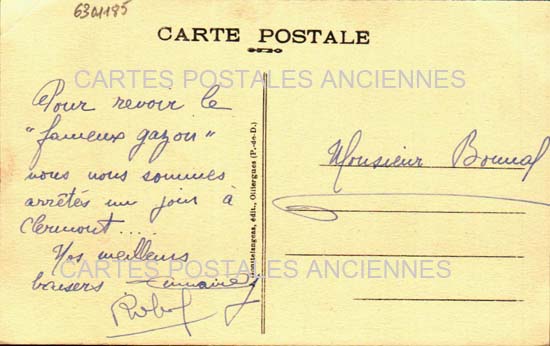 6301185
CARTE POSTALE
CARTES POSTALES ANCIENNES
Pour revoir le
"fameux gazon"
nous nous sommes
arrêtés un jour à
Clermont...
Nos meilleurs
baisers
Monsieur Bounal
édit., Olliergues (P.-de-D.)
CARTES POSTALES ANCIENNES